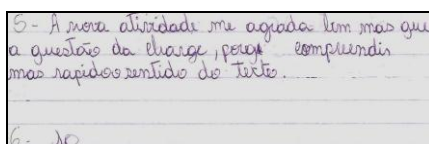 5 - A nova atividade me agrada bem mais que
a questão da charge, porqe compreendis
mas rapidoo sentido do texto.
6-